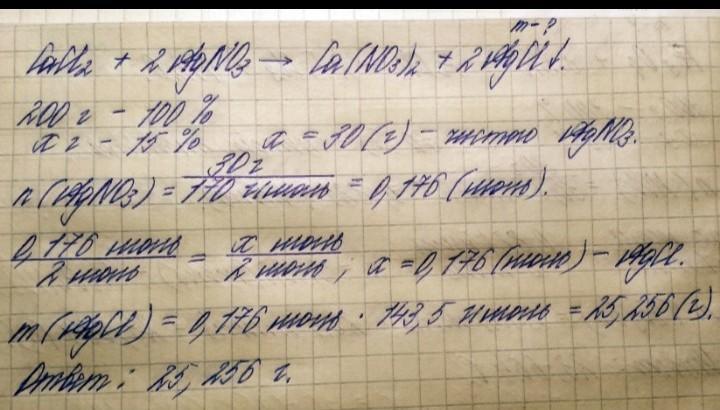 m - ?
CaCl₂ + 2AgNO₃ → Ca(NO₃)₂ + 2AgCl↓.
200 г - 100 %
x г - 15 % x = 30 (г) - чистого AgNO₃.
n (AgNO₃) = 30 г / 170 г/моль = 0,176 (моль).
0,176 моль / 2 моль = x моль / 2 моль ; x = 0,176 (моль) - AgCl.
m (AgCl) = 0,176 моль · 143,5 г/моль = 25,256 (г).
Ответ: 25,256 г.